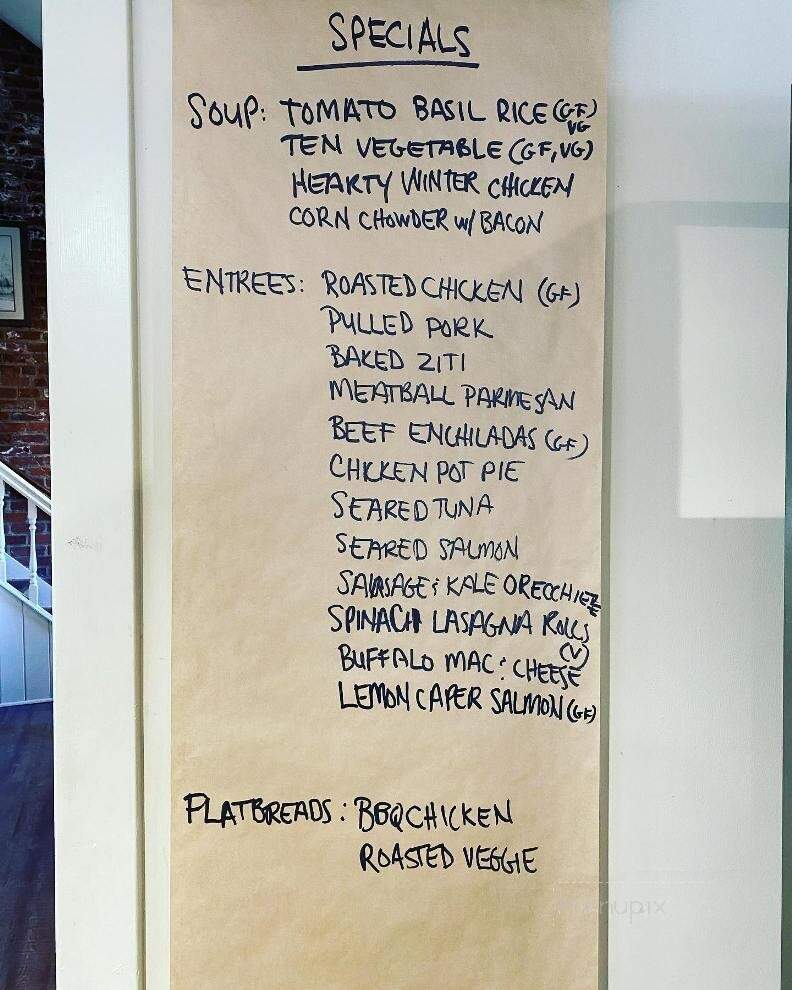 SPECIALS
SOUP: TOMATO BASIL RICE (GF)
VG
TEN VEGETABLE (GF, VG)
HEARTY WINTER CHICKEN
CORN CHOWDER W/ BACON
ENTREES: ROASTED CHICKEN (GF)
PULLED PORK
BAKED ZITI
MEATBALL PARMESAN
BEEF ENCHILADAS (GF)
CHICKEN POT PIE
SEARED TUNA
SEARED SALMON
SAUSAGE & KALE ORECCHIETTE
SPINACH LASAGNA ROLLS
(V)
BUFFALO MAC & CHEESE
LEMON CAPER SALMON (GF)
FLATBREADS: BBQ CHICKEN
ROASTED VEGGIE
menupix